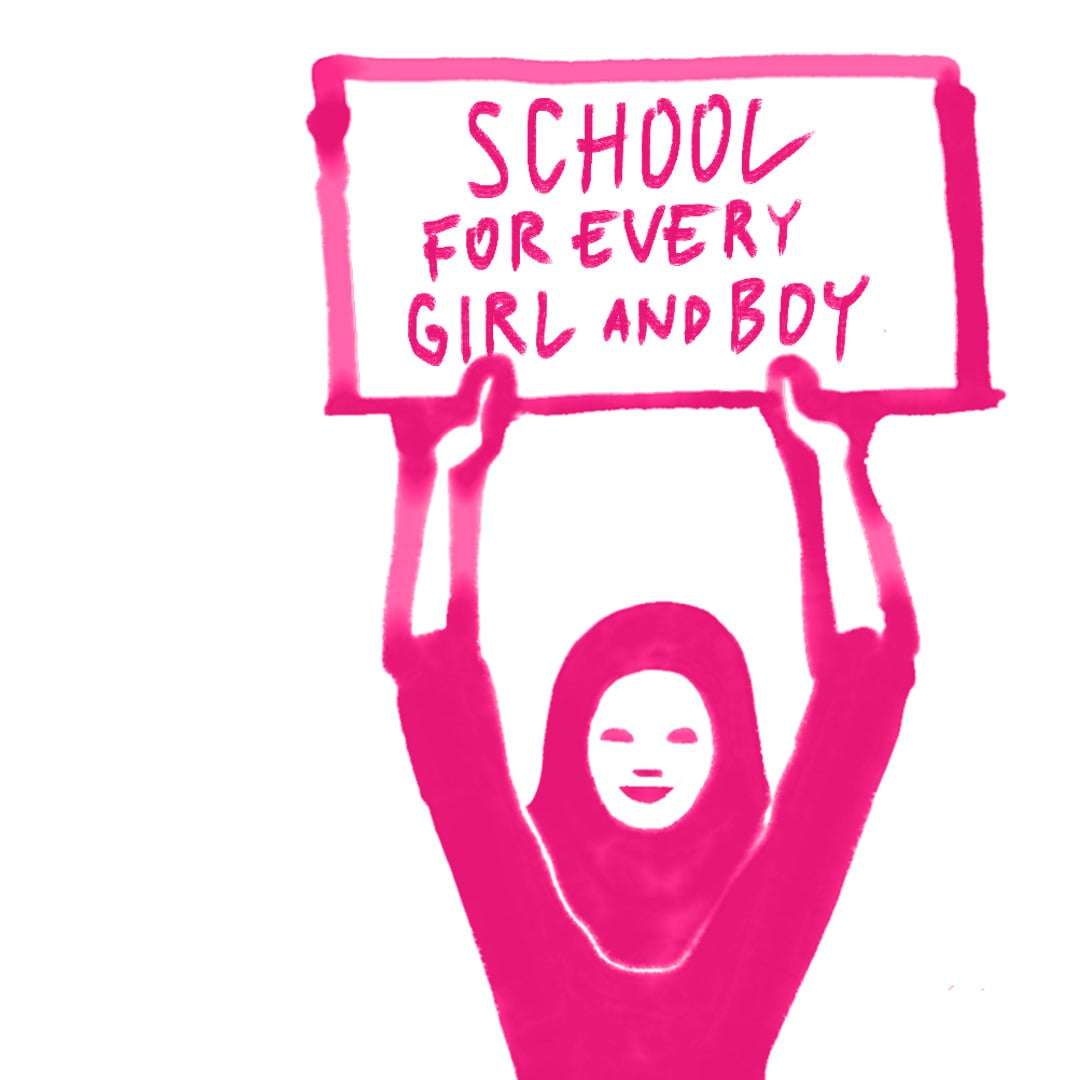 SCHOOL
FOR EVERY
GIRL AND BOY